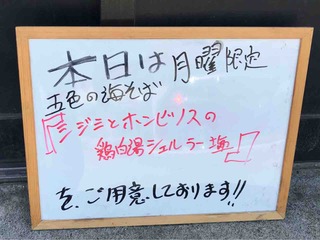 本日は月曜限定
五色の海そば
『シジミとホンビノスの
鶏白湯シェルラー塩』
を、ご用意しております!!